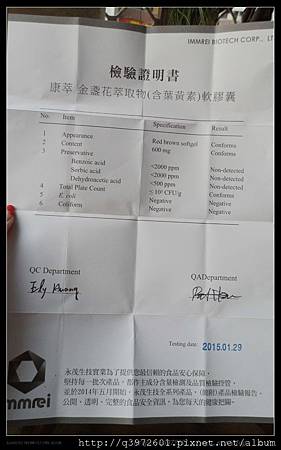 IMMREI BIOTECH CORP., LT
檢驗證明書
康萃 金盞花萃取物(含葉黃素)軟膠囊
No. Item Specification Result
1 Appearance Red brown softgel Conforms
2 Content 600 mg Conforms
3 Preservative
Benzoic acid <2000 ppm Non-detected
Sorbic acid <2000 ppm Non-detected
Dehydroacetic acid <500 ppm Non-detected
4 Total Plate Count ≤ 10³ CFU/g Conforms
5 E. coli Negative Negative
6 Coliform Negative Negative
QC Department QADepartment
Testing date: 2015.01.29
永茂生技實業為了提供您最信賴的食品安心保障,
堅持每一批次產品,都作主成分含量檢測及品質檢驗控管,
並於2014年五月開始,永茂生技全系列產品,(錠劑)產品檢驗報告,
公開、透明、完整的食品安全資訊,為您每天的健康把關。
immrei
http://q3972601.pixnet.net/album